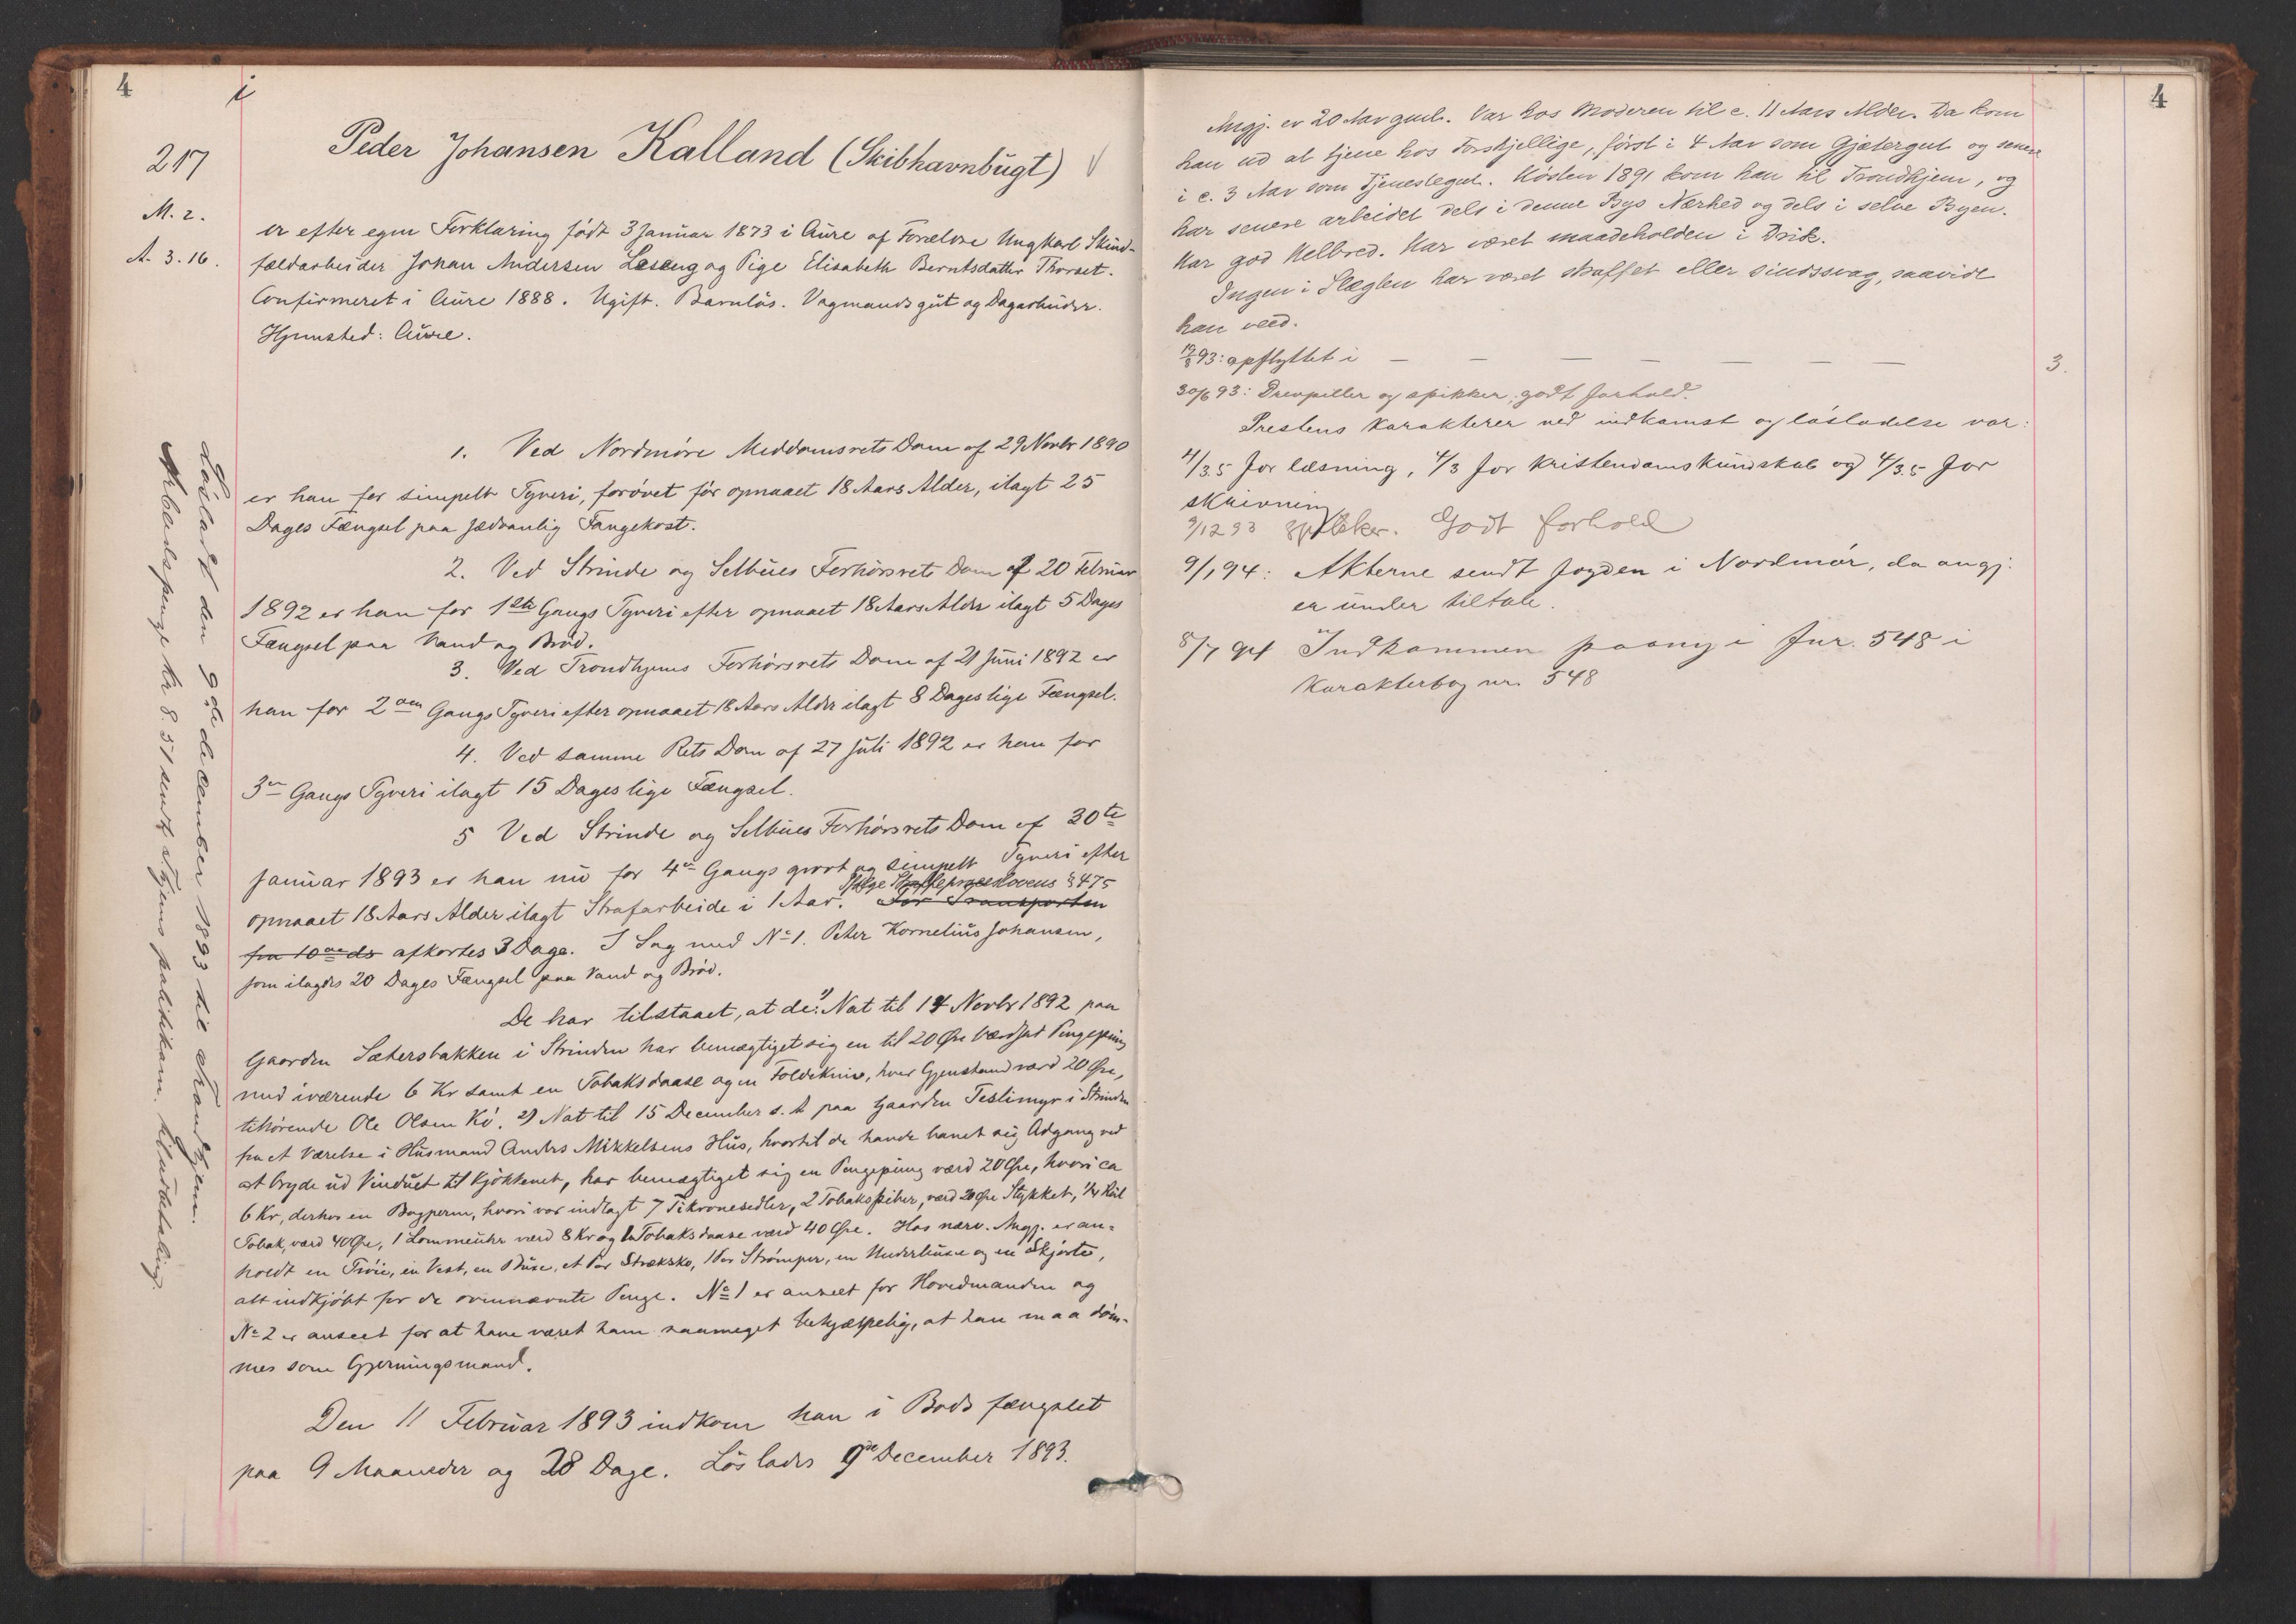 4
i
217
M. 2.
A. 3. 16.
Peder Johansen Kalland (Skibhavnbugt)
er efter egen Forklaring født 3 Januar 1873 i Aure af Forældre Ungkarl Skind-
fældarbeider Johan Andersen Leseng og Pige Elisabeth Berntsdatter Thorset.
Confirmeret i Aure 1888. Ugift. Barnløs. Vognmandsgut og Dagarbeider.
Hjemsted: Aure.
1. Ved Nordmøre Meddomsrets Dom af 29 Novbr 1890
er han for simpelt Tyveri, forøvet før opnaaet 18 Aars Alder, ilagt 25
Dages Fængsel paa sædvanlig Fangekost.
2. Ved Strinde og Selbues Forhørsrets Dom af 20 Februar
1892 er han for 1ste Gangs Tyveri efter opnaaet 18 Aars Alder ilagt 5 Dages
Fængsel paa Vand og Brød.
3. Ved Trondhjems Forhørsrets Dom af 21 Juni 1892 er
han for 2den Gangs Tyveri efter opnaaet 18 Aars Alder ilagt 8 Dages lige Fængsel.
4. Ved samme Rets Dom af 27 Juli 1892 er han for
3die Gangs Tyveri ilagt 15 Dages lige Fængsel.
5 Ved Strinde og Selbues Forhørsrets Dom af 30te
Januar 1893 er han nu for 4de Gangs grovt og simpelt Tyveri efter
Ifølge Straffeproceslovens § 475
opnaaet 18 Aars Alder ilagt Strafarbeide i 1 Aar. For Transporten
fra 10de ds afkortes 3 Dage. I Sag med No 1. Peter Kornelius Johansen,
som ilagdes 20 Dages Fængsel paa Vand og Brød.
De har tilstaaet, at de: 1) Nat til 14 Novbr 1892 paa
Gaarden Sætersbakken i Strinden har bemægtiget sig en til 20 Øre værdsat Pengepung
med iværende 6 Kr samt en Tobaksdaase og en Foldekniv, hver Gjenstand værd 20 Øre,
tilhørende Ole Olsen Kø. 2) Nat til 15 December s. A paa Gaarden Teslimyr i Strinden
fra et Værelse i Husmand Anders Mikkelsens Hus, hvortil de havde banet sig Adgang ved
at bryde ud Vinduet til Kjøkkenet, har bemægtiget sig en Pengepung værd 20 Øre, hvori ca
6 Kr, derhos en Bogperm, hvori var indlagt 7 Tikronesedler, 2 Tobakspiber, værd 20 Øre Stykket, 1/4 Rul
Tobak, værd 40 Øre, 1 Lommeuhr værd 8 Kr og 1 Tobaksdaase værd 40 Øre. Hos nærv. Angj. er an-
holdt en Trøie, en Vest, en Buxe, et Par Stræksko, 1 Par Strømper, en Underbuxe og en Skjorte,
alt indkjøbt for de ovennævnte Penge. No 1 er anseet for Hovedmanden og
No 2 er anseet for at have været ham saameget behjælpelig, at han maa døm-
mes som Gjerningsmand.
Den 11 Februar 1893 indkom han i Bods fængslet
paa 9 Maaneder og 28 Dage. Løslades 9de December 1893.
Løsladt den 9de december 1893 til Trondhjem.
Arbeidspenge kr 8.51 sendt Thjems politikam. til udbetaling.
4
Angj. er 20 Aar gml. Var hos Moderen til c. 11 Aars Alder. Da kom
han ud at tjene hos Forskjellige, først i 4 Aar som Gjætergut og senere
i c. 3 Aar som Tjenestegut. Høsten 1891 kom han til Trondhjem, og
har senere arbeidet dels i denne Bys Nærhed og dels i selve Byen.
Har god Helbred. Har været maadeholden i Drik.
Ingen i Slægten har været straffet eller sindssvag, saavidt
han veed.
93: opflyttet i — — — — — — — 3.
30/6 93: Drevpiller og spikker, godt forhold.
Prestens karakterer ved indkomst og løsladelse var:
4/3.5 for læsning, 4/3 for kristendomskundskab og 4/3.5 for
skrivning
9/12 93 spikker. Godt forhold
9/1 94: Akterne sendt fogden i Nordmør, da angj.
er under tiltale.
8/7 94 Indkommen paany i Jnr. 548 i
Karakterbog nr. 548